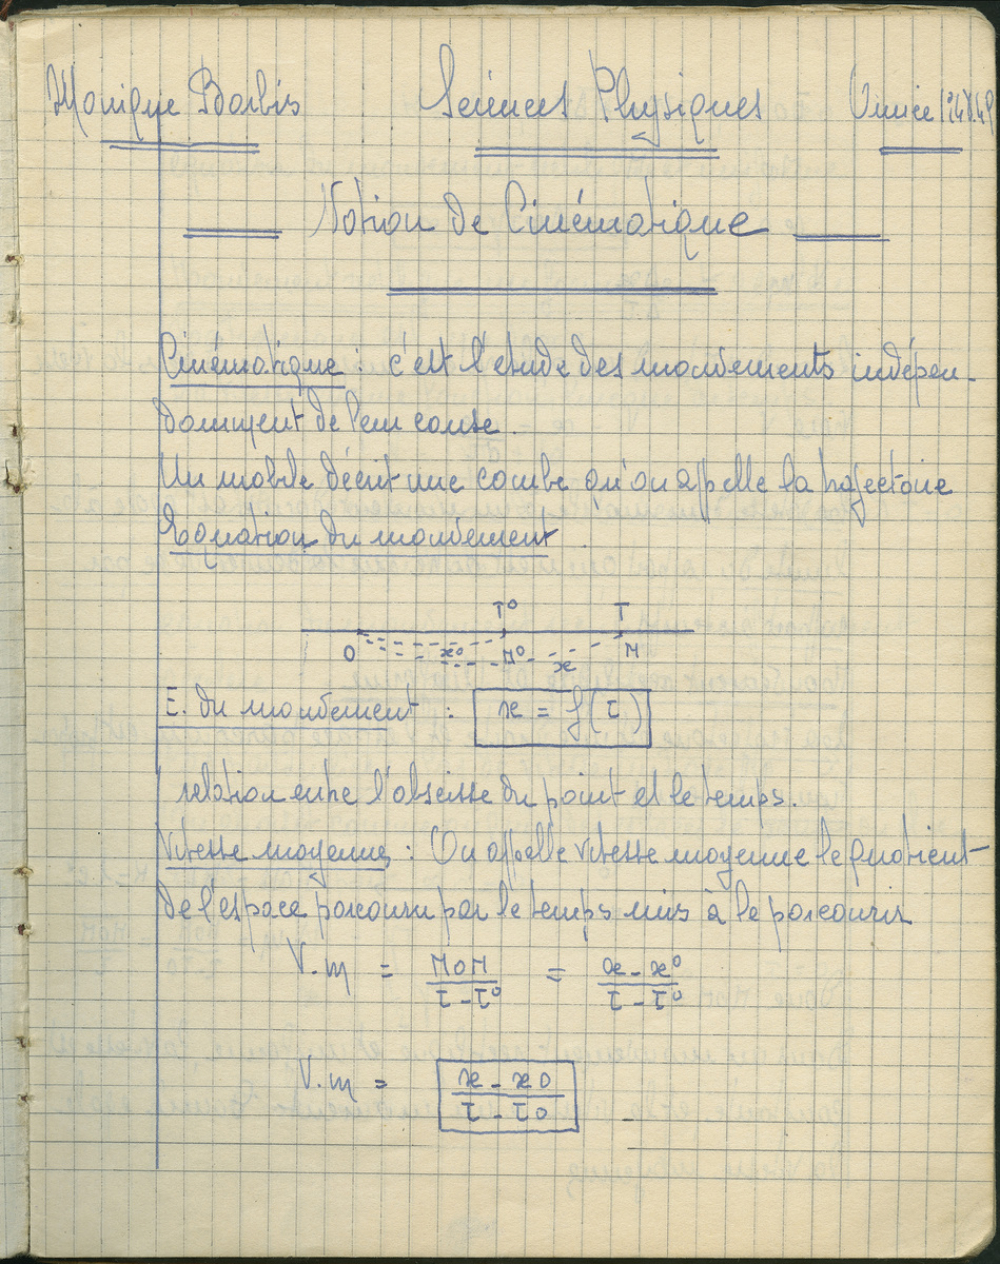 Monique Borbis Sciences Physiques
Notion de Cinématique
Cinématique : c'est l'étude des mouvements indépen-
damment de leur cause.
Un mobile décrit une courbe qu'on appelle la trajectoire
Equation du mouvement
T° T
O x° M° x M
E. du mouvement : x = f(t)
relation entre l'abscisse du point et le temps.
Vitesse moyenne : On appelle vitesse moyenne le quotient
de l'espace parcouru par le temps mis à le parcourir
V.m = MoM / t - t° = x - x° / t - t°
V.m = x - xo / t - to